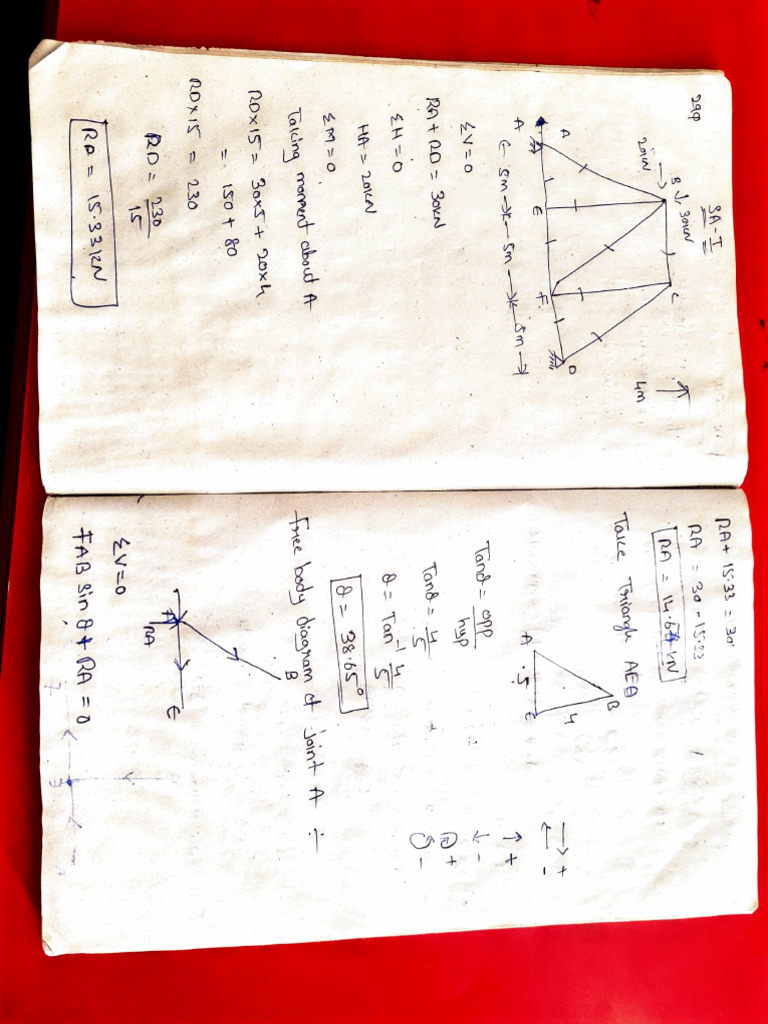 29φ
SA-I
20kN → B ↓ 30kN
C
4m
A
A E F D
← 5m → ← 5m → ← 5m →
ΣV=0
RA + RD = 30kN
ΣH=0
HA = 20kN
ΣM=0
Taking moment about A
RD×15 = 30×5 + 20×4
= 150 + 80
RD×15 = 230
RD = 230/15
RD = 15.33kN
RA + 15.33 = 30
RA = 30 - 15.33
RA = 14.67kN
Take Triangle AEB
B
A 5 E 4
→ +
← -
↑ +
↓ -
+
-
Tanθ = opp/hyp
Tanθ = 4/5
θ = Tan⁻¹ 4/5
θ = 38.65°
free body diagram of joint A ÷
B
A E
RA
ΣV=0
FAB sin θ + RA = 0